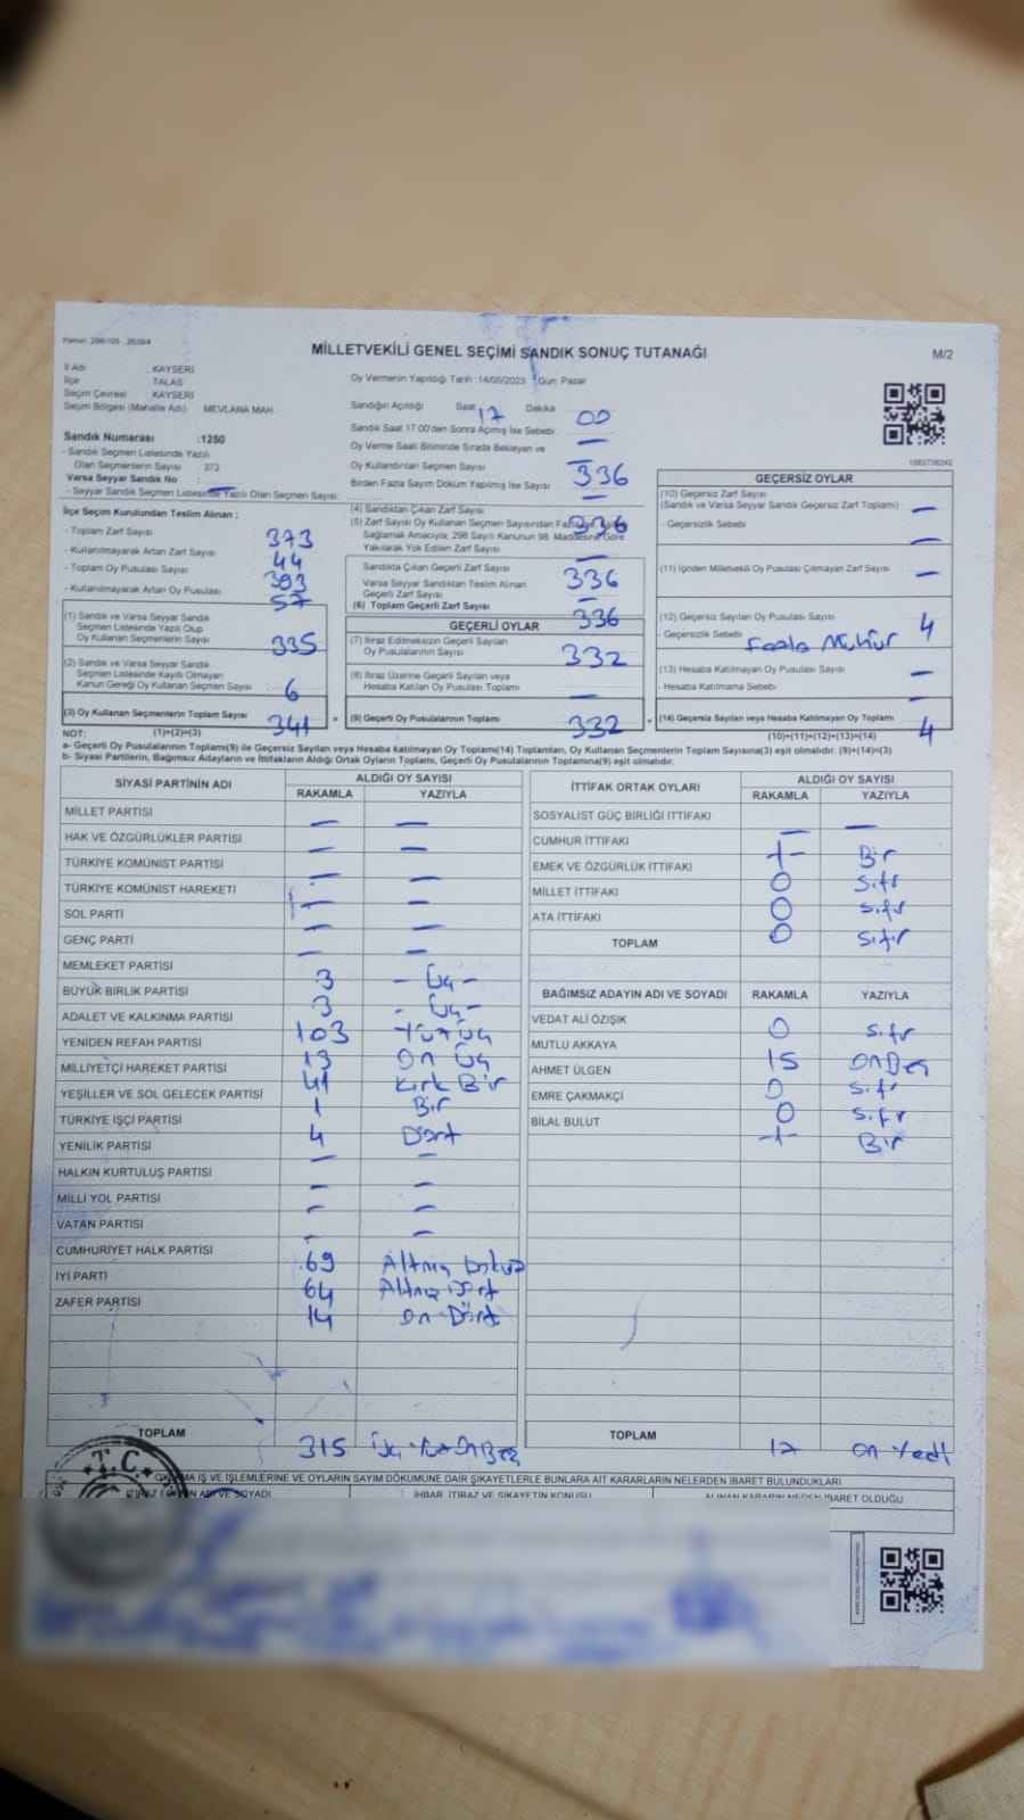 MİLLETVEKİLİ GENEL SEÇİMİ SANDIK SONUÇ TUTANAĞI
M/2
İl Adı : KAYSERİ
İlçe : TALAS
Seçim Çevresi : KAYSERİ
Seçim Bölgesi (Mahalle Adı) : MEVLANA MAH.
Sandık Numarası : 1250
- Sandık Seçmen Listesinde Yazılı
Olan Seçmenlerin Sayısı : 373
Varsa Seyyar Sandık No : —
- Seyyar Sandık Seçmen Listesinde Yazılı Olan Seçmen Sayısı:
Oy Vermenin Yapıldığı Tarih : 14/05/2023 Gün: Pazar
Sandığın Açıldığı Saat 17 Dakika 00
Sandık Saat 17:00'den Sonra Açılmış İse Sebebi —
Oy Verme Saati Bitiminde Sırada Bekleyen ve —
Oy Kullandırılan Seçmen Sayısı 336
Birden Fazla Sayım Döküm Yapılmış İse Sayısı —
İlçe Seçim Kurulundan Teslim Alınan :
- Toplam Zarf Sayısı 373
- Kullanılmayarak Artan Zarf Sayısı 44
- Toplam Oy Pusulası Sayısı 393
- Kullanılmayarak Artan Oy Pusulası 57
(1) Sandık ve Varsa Seyyar Sandık
Seçmen Listesinde Yazılı Olup
Oy Kullanan Seçmenlerin Sayısı 335
(2) Sandık ve Varsa Seyyar Sandık
Seçmen Listesinde Kayıtlı Olmayan
Kanun Gereği Oy Kullanan Seçmen Sayısı 6
(3) Oy Kullanan Seçmenlerin Toplam Sayısı 341
(4) Sandıktan Çıkan Zarf Sayısı 336
(5) Zarf Sayısı Oy Kullanan Seçmen Sayısından
Sağlamak Amacıyla, 298 Sayılı Kanunun 98. Maddesine Göre
Yakılarak Yok Edilen Zarf Sayısı
Sandıkta Çıkan Geçerli Zarf Sayısı 336
Varsa Seyyar Sandıktan Teslim Alınan
Geçerli Zarf Sayısı —
(6) Toplam Geçerli Zarf Sayısı 336
GEÇERLİ OYLAR
(7) İtiraz Edilmeksizin Geçerli Sayılan
Oy Pusulalarının Sayısı 332
(8) İtiraz Üzerine Geçerli Sayılan veya
Hesaba Katılan Oy Pusulası Toplamı —
(9) Geçerli Oy Pusulalarının Toplamı 332
GEÇERSİZ OYLAR
(10) Geçersiz Zarf Sayısı
(Sandık ve Varsa Seyyar Sandık Geçersiz Zarf Toplamı) —
- Geçersizlik Sebebi —
(11) İçinden Milletvekili Oy Pusulası Çıkmayan Zarf Sayısı —
(12) Geçersiz Sayılan Oy Pusulası Sayısı 4
- Geçersizlik Sebebi Fazla Mühür
(13) Hesaba Katılmayan Oy Pusulası Sayısı —
- Hesaba Katılmama Sebebi
(14) Geçersiz Sayılan veya Hesaba Katılmayan Oy Toplamı 4
NOT: (1)+(2)=(3) (10)+(11)+(12)+(13)=(14)
a- Geçerli Oy Pusulalarının Toplamı(9) ile Geçersiz Sayılan veya Hesaba Katılmayan Oy Toplamı(14) Toplamları, Oy Kullanan Seçmenlerin Toplam Sayısına(3) eşit olmalıdır. (9)+(14)=(3)
b- Siyasi Partilerin, Bağımsız Adayların ve İttifakların Aldığı Ortak Oyların Toplamı, Geçerli Oy Pusulalarının Toplamına(9) eşit olmalıdır.
SİYASİ PARTİNİN ADI ALDIĞI OY SAYISI
RAKAMLA YAZIYLA
MİLLET PARTİSİ — —
HAK VE ÖZGÜRLÜKLER PARTİSİ — —
TÜRKİYE KOMÜNİST PARTİSİ — —
TÜRKİYE KOMÜNİST HAREKETİ — —
SOL PARTİ — —
GENÇ PARTİ — —
MEMLEKET PARTİSİ 3 - Üç -
BÜYÜK BİRLİK PARTİSİ 3 - Üç -
ADALET VE KALKINMA PARTİSİ 103 Yüz Üç
YENİDEN REFAH PARTİSİ 13 On Üç
MİLLİYETÇİ HAREKET PARTİSİ 41 Kırk Bir
YEŞİLLER VE SOL GELECEK PARTİSİ 1 Bir
TÜRKİYE İŞÇİ PARTİSİ 4 Dört
YENİLİK PARTİSİ — —
HALKIN KURTULUŞ PARTİSİ — —
MİLLİ YOL PARTİSİ — —
VATAN PARTİSİ — —
CUMHURİYET HALK PARTİSİ 69 Altmış Dokuz
İYİ PARTİ 64 Altmış Dört
ZAFER PARTİSİ 14 On Dört
TOPLAM 315
İTTİFAK ORTAK OYLARI ALDIĞI OY SAYISI
RAKAMLA YAZIYLA
SOSYALİST GÜÇ BİRLİĞİ İTTİFAKI — —
CUMHUR İTTİFAKI 1 Bir
EMEK VE ÖZGÜRLÜK İTTİFAKI 0 Sıfır
MİLLET İTTİFAKI 0 Sıfır
ATA İTTİFAKI 0 Sıfır
TOPLAM
BAĞIMSIZ ADAYIN ADI VE SOYADI RAKAMLA YAZIYLA
VEDAT ALİ ÖZIŞIK 0 Sıfır
MUTLU AKKAYA 15 OnBeş
AHMET ÜLGEN 0 Sıfır
EMRE ÇAKMAKÇİ 0 Sıfır
BİLAL BULUT 1 Bir
TOPLAM 17 On Yedi
T.C.
İŞ VE İŞLEMLERİNE VE OYLARIN SAYIM DÖKÜMÜNE DAİR ŞİKAYETLERLE BUNLARA AİT KARARLARIN NELERDEN İBARET BULUNDUKLARI
ADI VE SOYADI İHBAR, İTİRAZ VE ŞİKAYETİN KONUSU ALINAN KARARIN NEDEN İBARET OLDUĞU